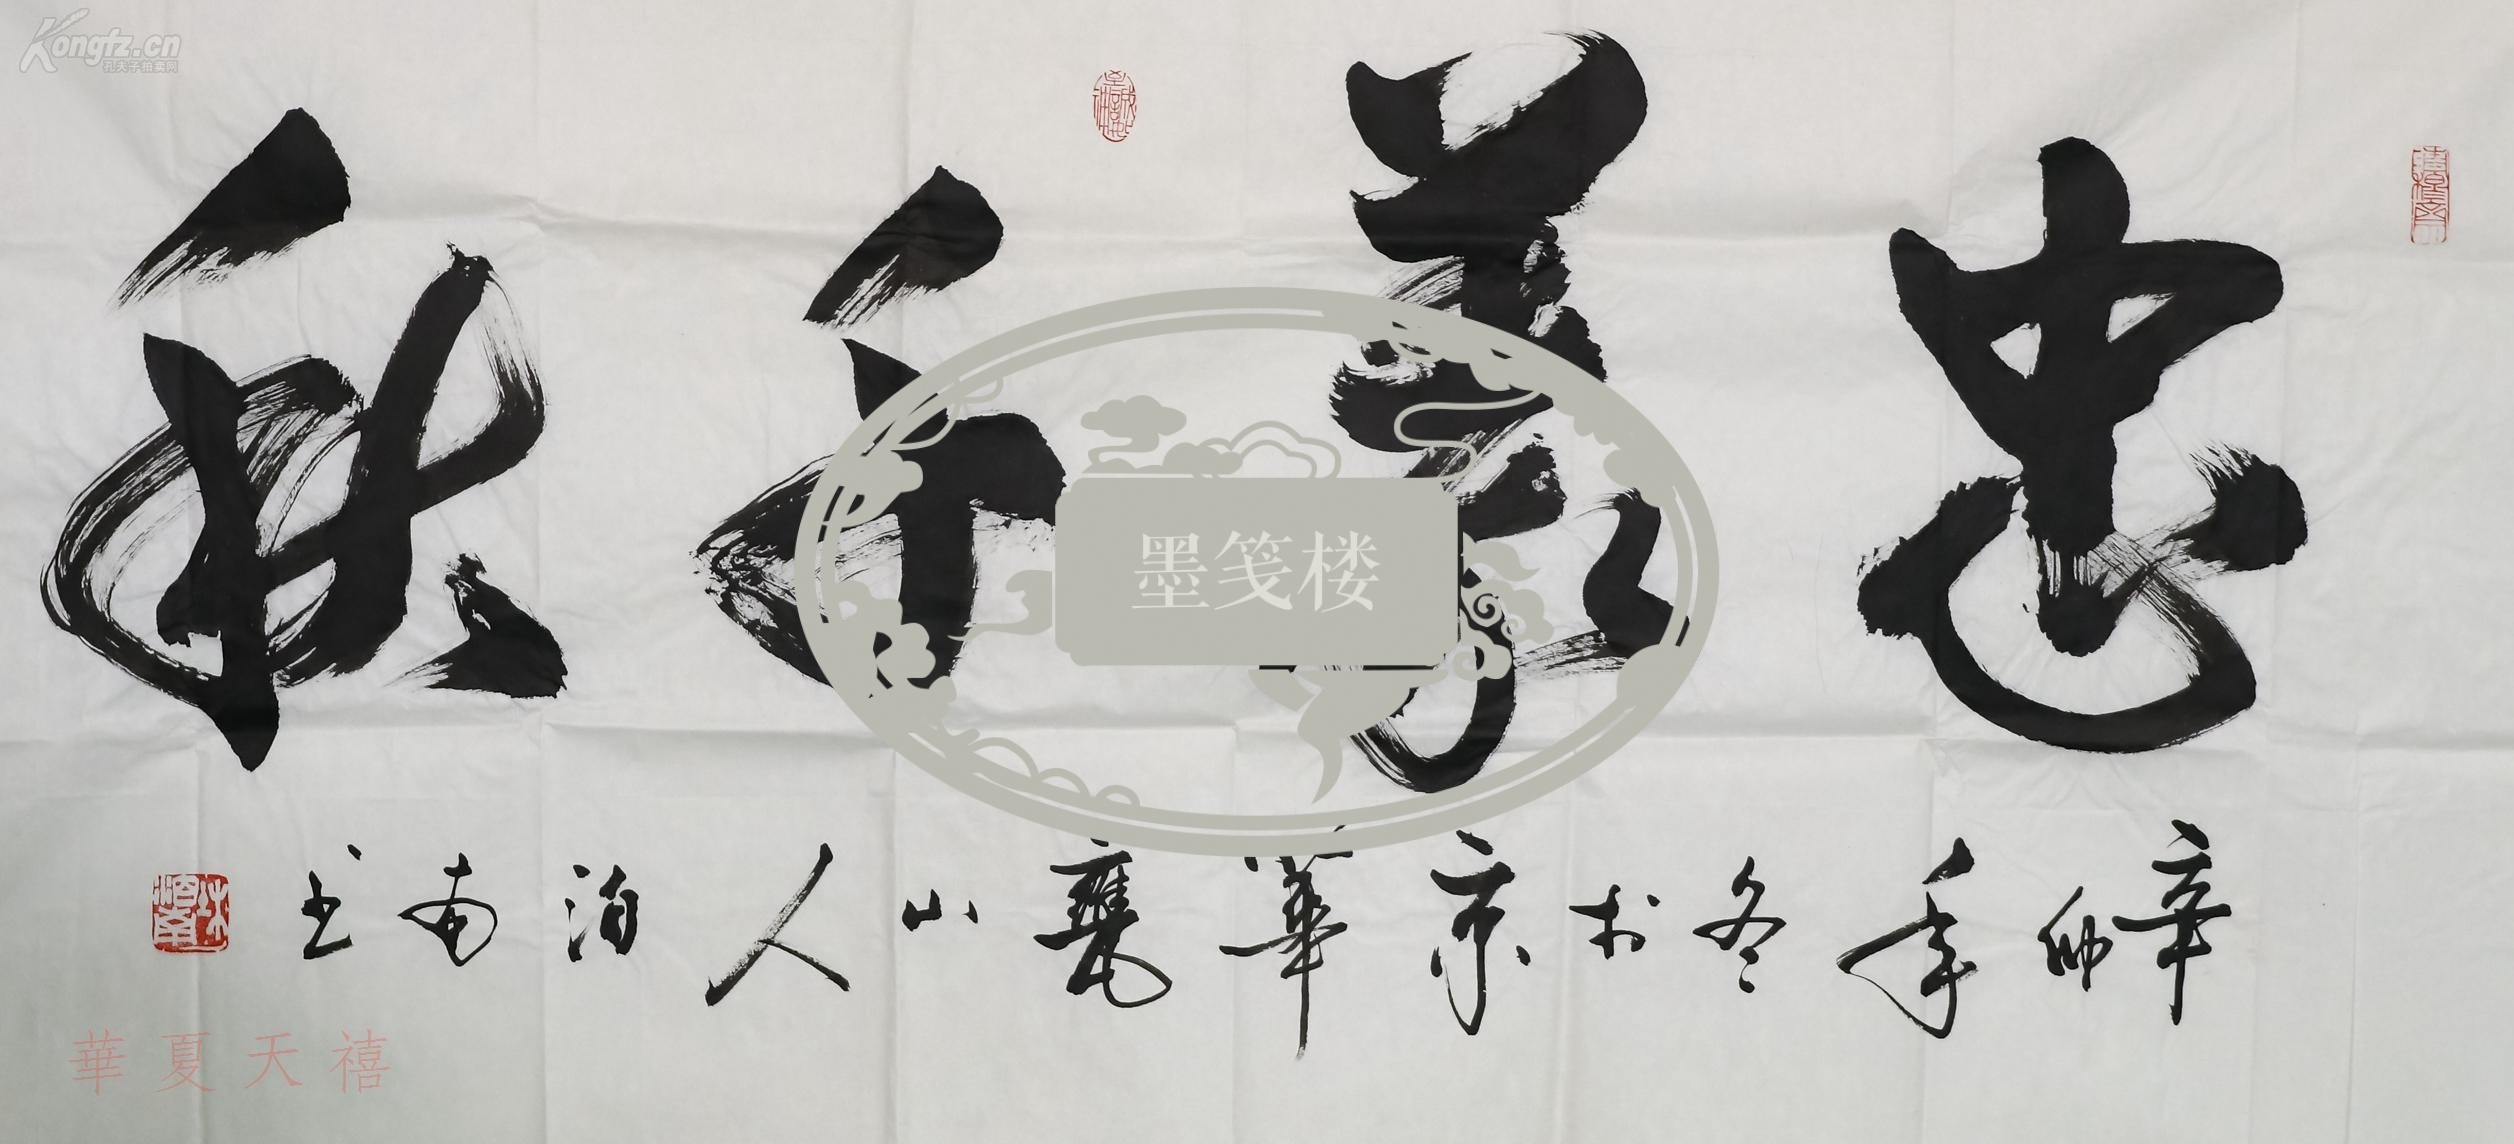 忠义千秋
辛卯年冬于京华瓮山人泊南书
墨笺楼
華夏天禧
Kongfz.cn
孔夫子拍卖网